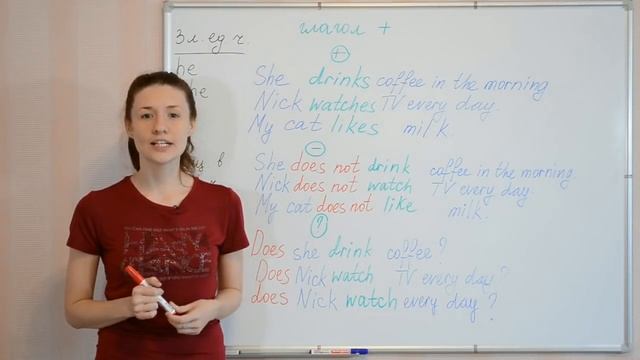 глагол +
3 л. ед ч.
he
+
She drinks coffee in the morning
Nick watches TV every day
My cat likes milk.
−
She does not drink coffee in the morning
Nick does not watch TV every day
My cat does not like milk.
?
Does she drink coffee?
Does Nick watch TV every day?
does Nick watch every day?